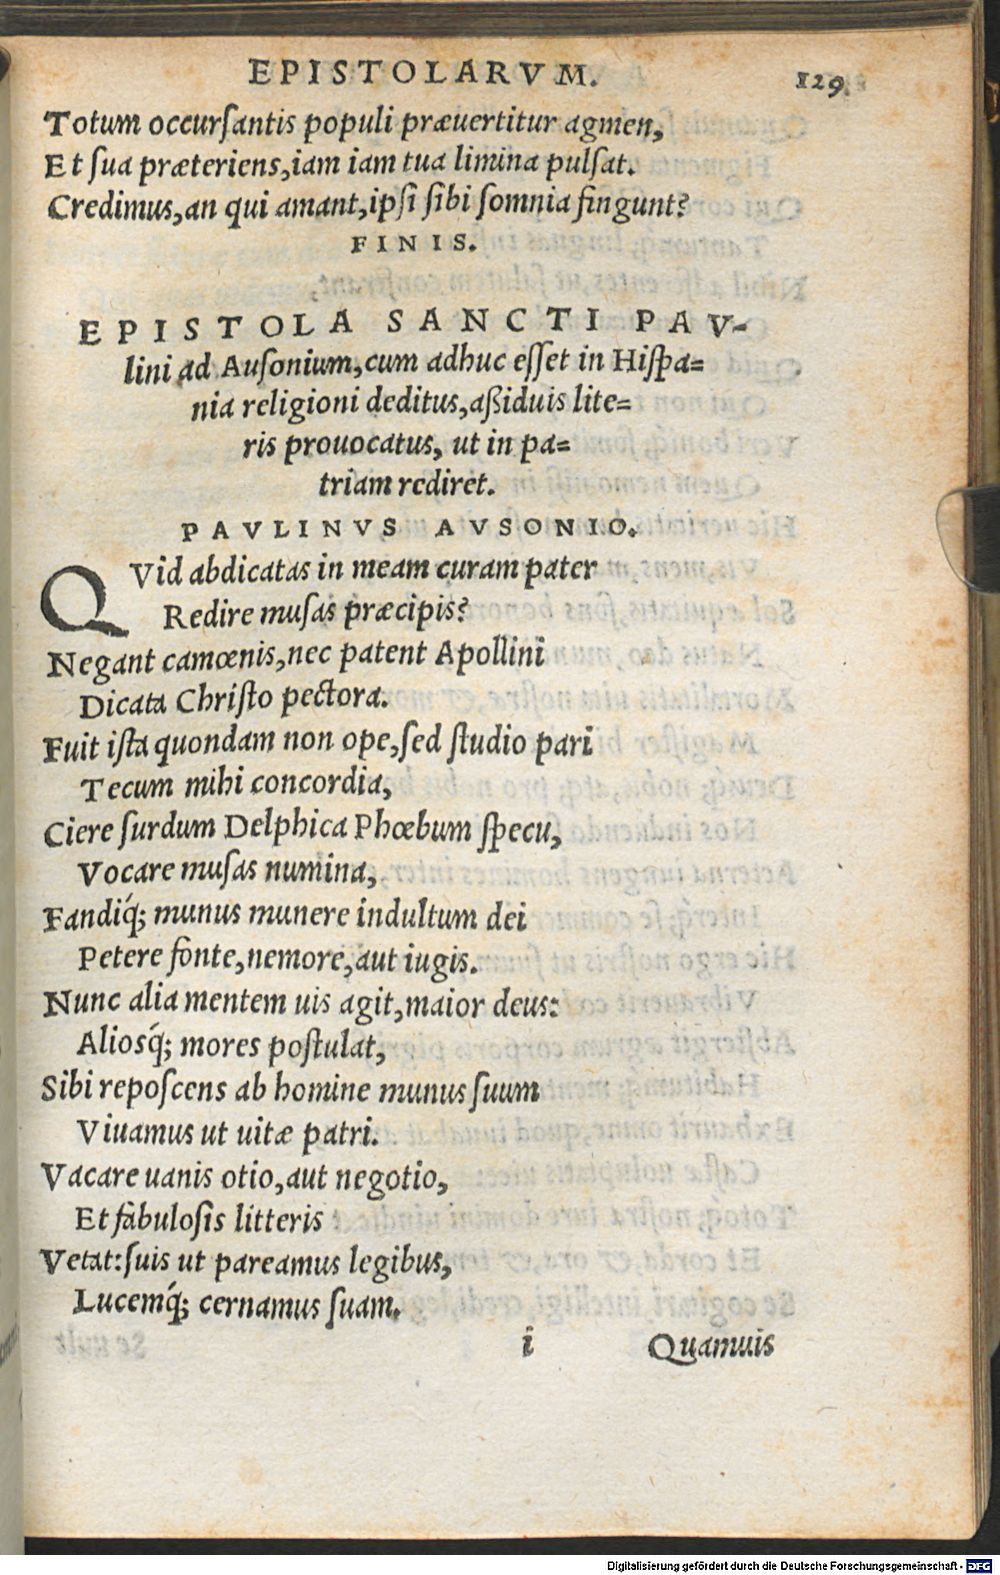 EPISTOLARVM. 129.
Totum occurſantis populi præuertitur agmen,
Et ſua præteriens,iam iam tua limina pulſat.
Credimus,an qui amant,ipſi ſibi ſomnia fingunt?
FINIS.
EPISTOLA SANCTI PAV-
lini ad Auſonium,cum adhuc eſſet in Hiſpa=
nia religioni deditus,aßiduis lite=
ris prouocatus, ut in pa=
triam rediret.
PAVLINVS AVSONIO.
QVid abdicatas in meam curam pater
Redire muſas præcipis?
Negant camœnis,nec patent Apollini
Dicata Chriſto pectora.
Fuit iſta quondam non ope,ſed ſtudio pari
Tecum mihi concordia,
Ciere ſurdum Delphica Phœbum ſpecu,
Vocare muſas numina,
Fandiq́; munus munere indultum dei
Petere fonte,nemore,aut iugis.
Nunc alia mentem uis agit,maior deus:
Aliosq́; mores poſtulat,
Sibi repoſcens ab homine munus ſuum
Viuamus ut uitæ patri.
Vacare uanis otio,aut negotio,
Et fabuloſis litteris
Vetat:ſuis ut pareamus legibus,
Lucemq́; cernamus ſuam.
i Quamuis
Digitalisierung gefördert durch die Deutsche Forschungsgemeinschaft - DFG